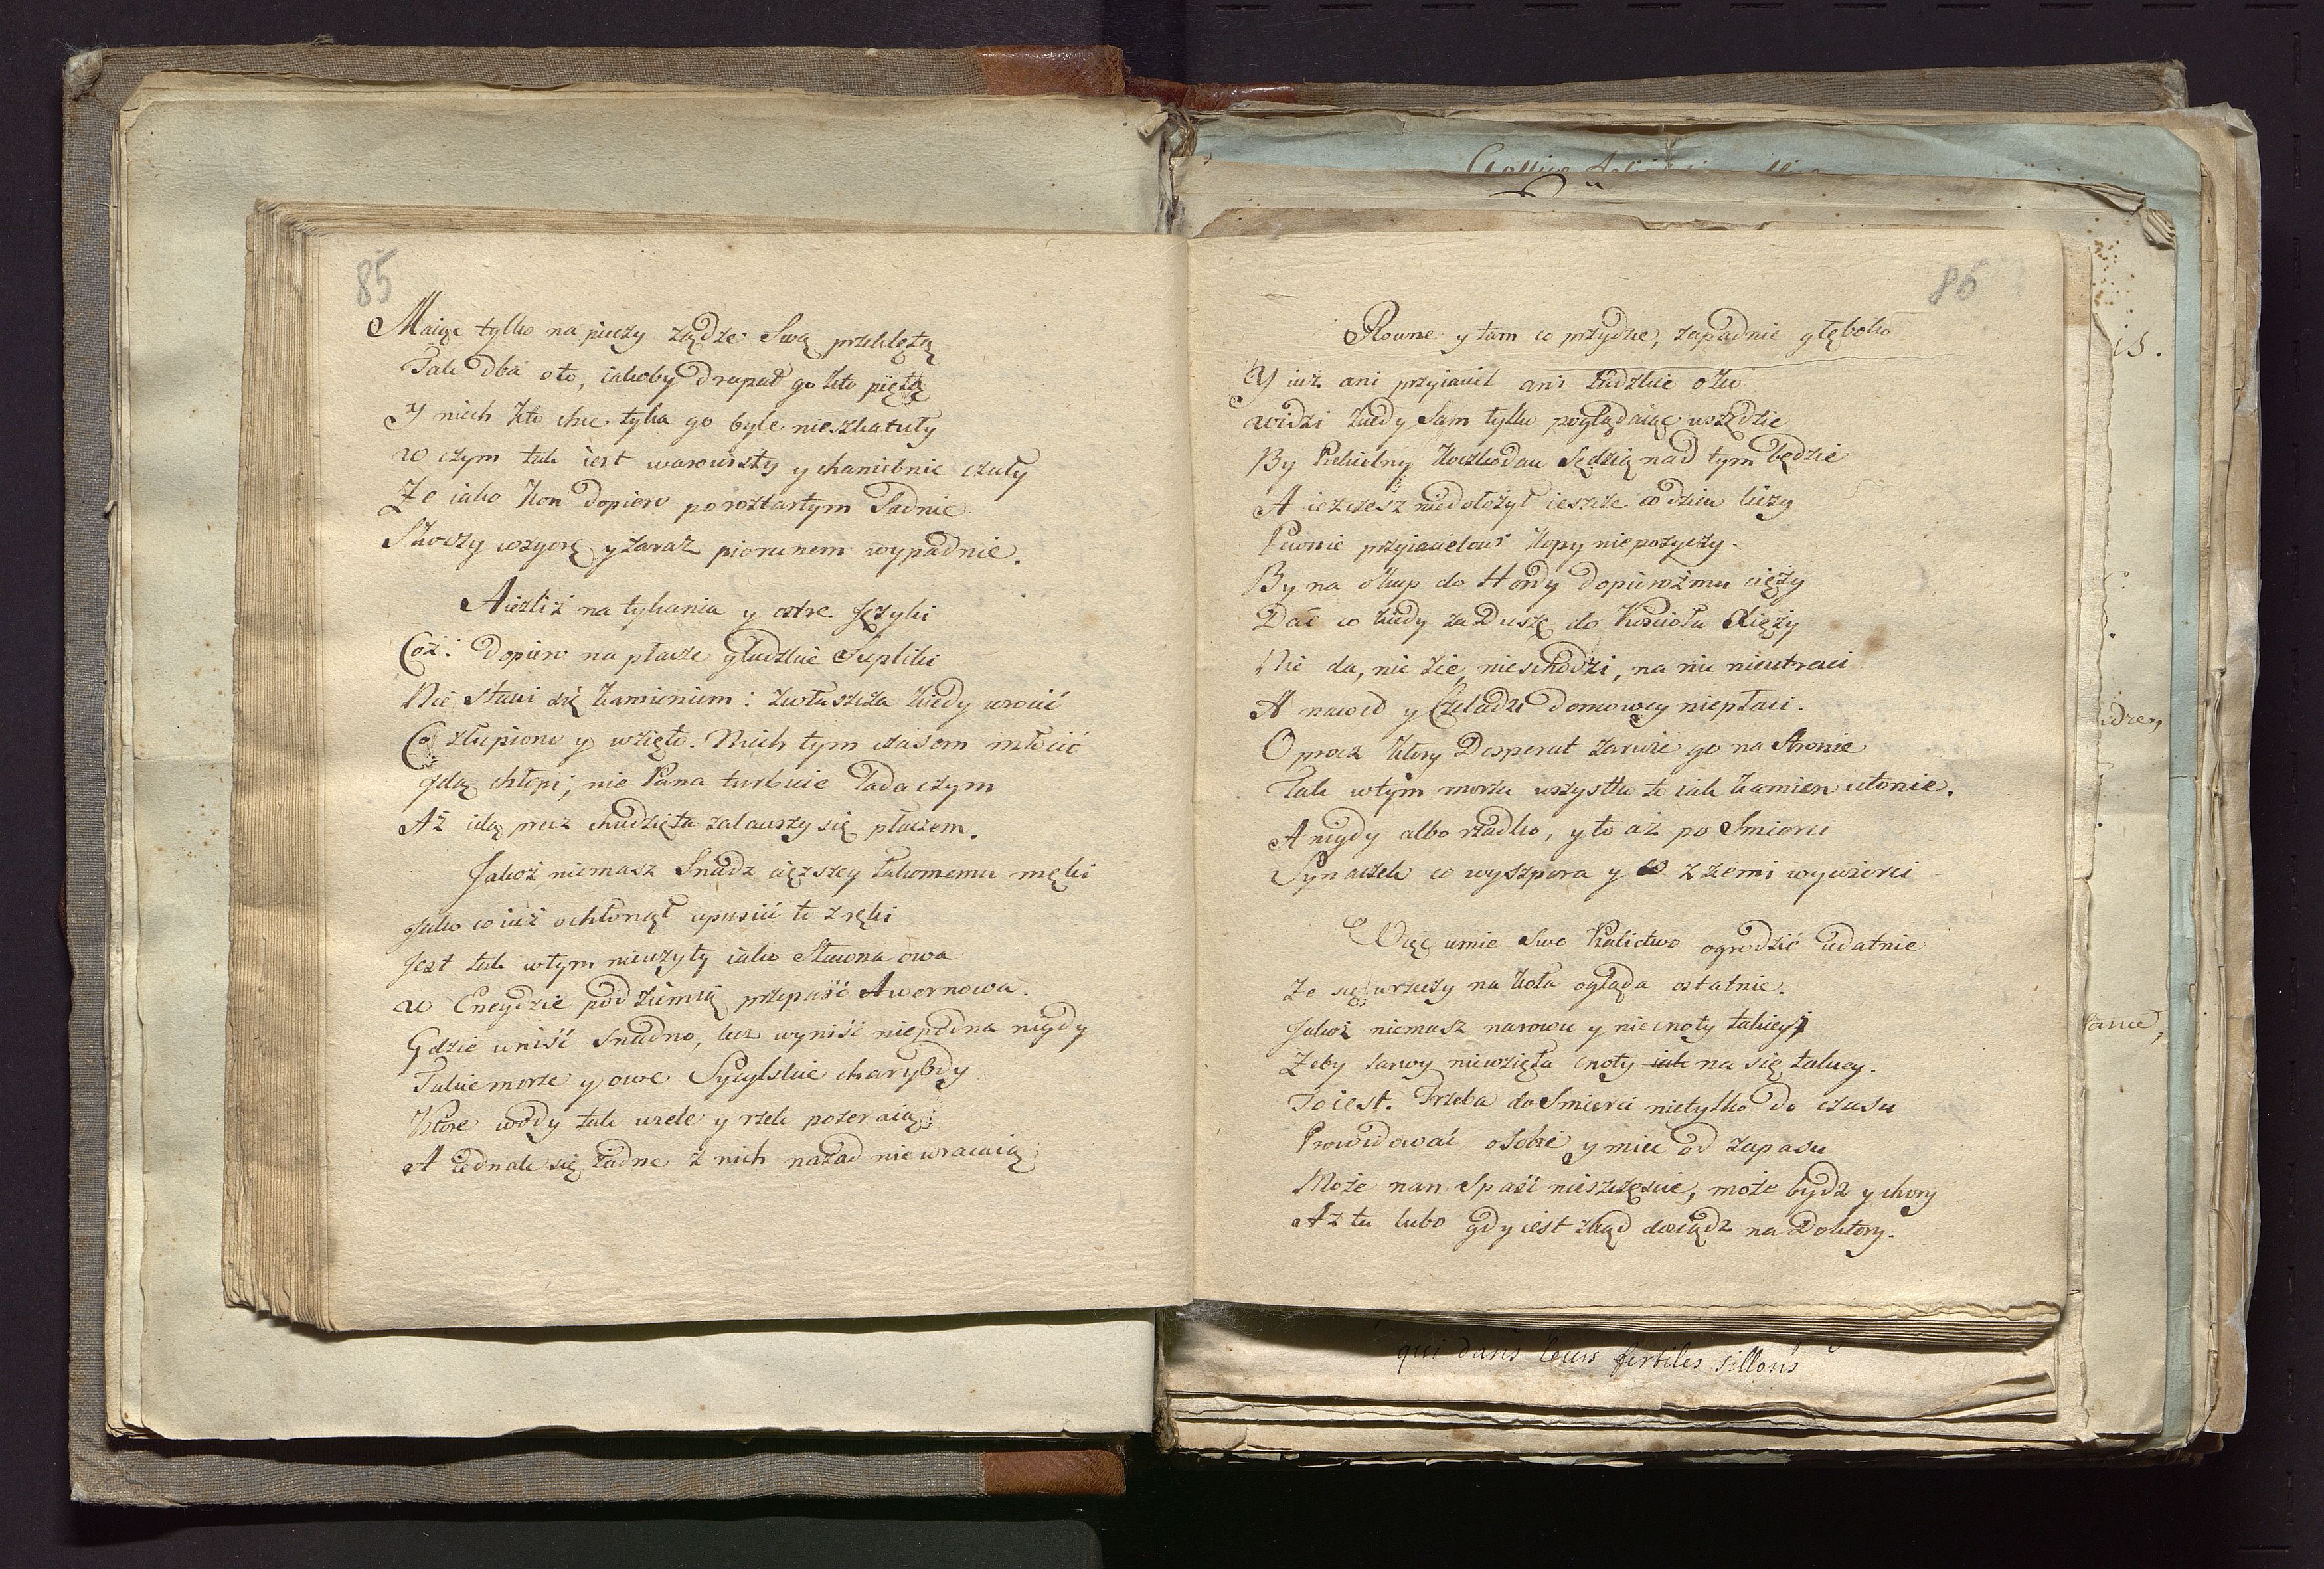 85
Maiąc tylko na pieczy żądze Swą przeklętą
Tak dba oto, iakoby drapał go kto piętą
Y niech kto chce tyka go byle nieszkatuły
w czym tak iest warowisty y chaniebnie czuły
Ze iako kon dopiero porostartym Padnie
Skoczy wzgorę y zaraz piorunem wypadnie.
Aieźliż na tykania y ostre Języki
Coż: dopiero na płacze y ludzkie Supliki
Nie stawi się kamieniem: zwłaszcza kiedy wrocić
Co złupiono y wzięto. Niech tym czasem młócić
Idą chłopi; nie Pana turbuie Lada czym
Aż idą precz chudzięta zalawszy się płaczem.
Jakoż niemasz Snadz cięzszey Łakomemu męki
Jako co iuż ochłonął upuscić to z ręki
Jest tak wtym nieużyty iako Sławna owa
w Eneydzie pod ziemią przepaść Awernowa.
Gdzie wniść snadno, lecz wyniść niepodna nigdy
Takie morze y owe Sycylskie charybdy
Ktore wody tak wiele y rzek pożeraią
A iednak się żadne z nich nazad nie wracaią
86
Rowne y tam co przydzie, zapadnie głęboko
Y iuż ani przyiaciel ani Ludzkie oko
widzi kiedy Sam tylko poglądaiąc wszędzie
By Piekielny Koczkodan Sędzią nad tym będzie
A ieżczesz niedołożył ieszcze co dzien liczy
Pewnie przyiacielowi kopy niepozyczy.
By na okup do Hordy dopieroż mu cięży
Dać co kiedy za Duszę do Kościoła Xięży
Nie da, nie zie, nieschodzi, na nic nieutraci
A nawed y Czeladzi domowey niepłaci.
Oprocz ktory Desperat zarwie go na stronie
Tak wtym morzu wszystko to iak kamien utonie.
A nigdy albo rzadko, y to aż po Smierci
Synaczek co wyszpera y co z ziemi wywierci
Więc umie swe kalictwo ogrodzić udatnie
Ze się wrzeczy na koła ogląda ostatnie.
Jakoż niemasz narowu y niecnoty takiey
Żeby sarwy niewzięła cnoty iak na się takiey.
To iest. Trzeba do Smierci nietylko do czasu
Prowidować o sobie y miec od zapasu
Może nan Spaść nieszczęście, może bydz y chory
Az tu lubo gdy iest zkąd dosiądz na Doktory.
qui dans leurs fertiles sillons
is.